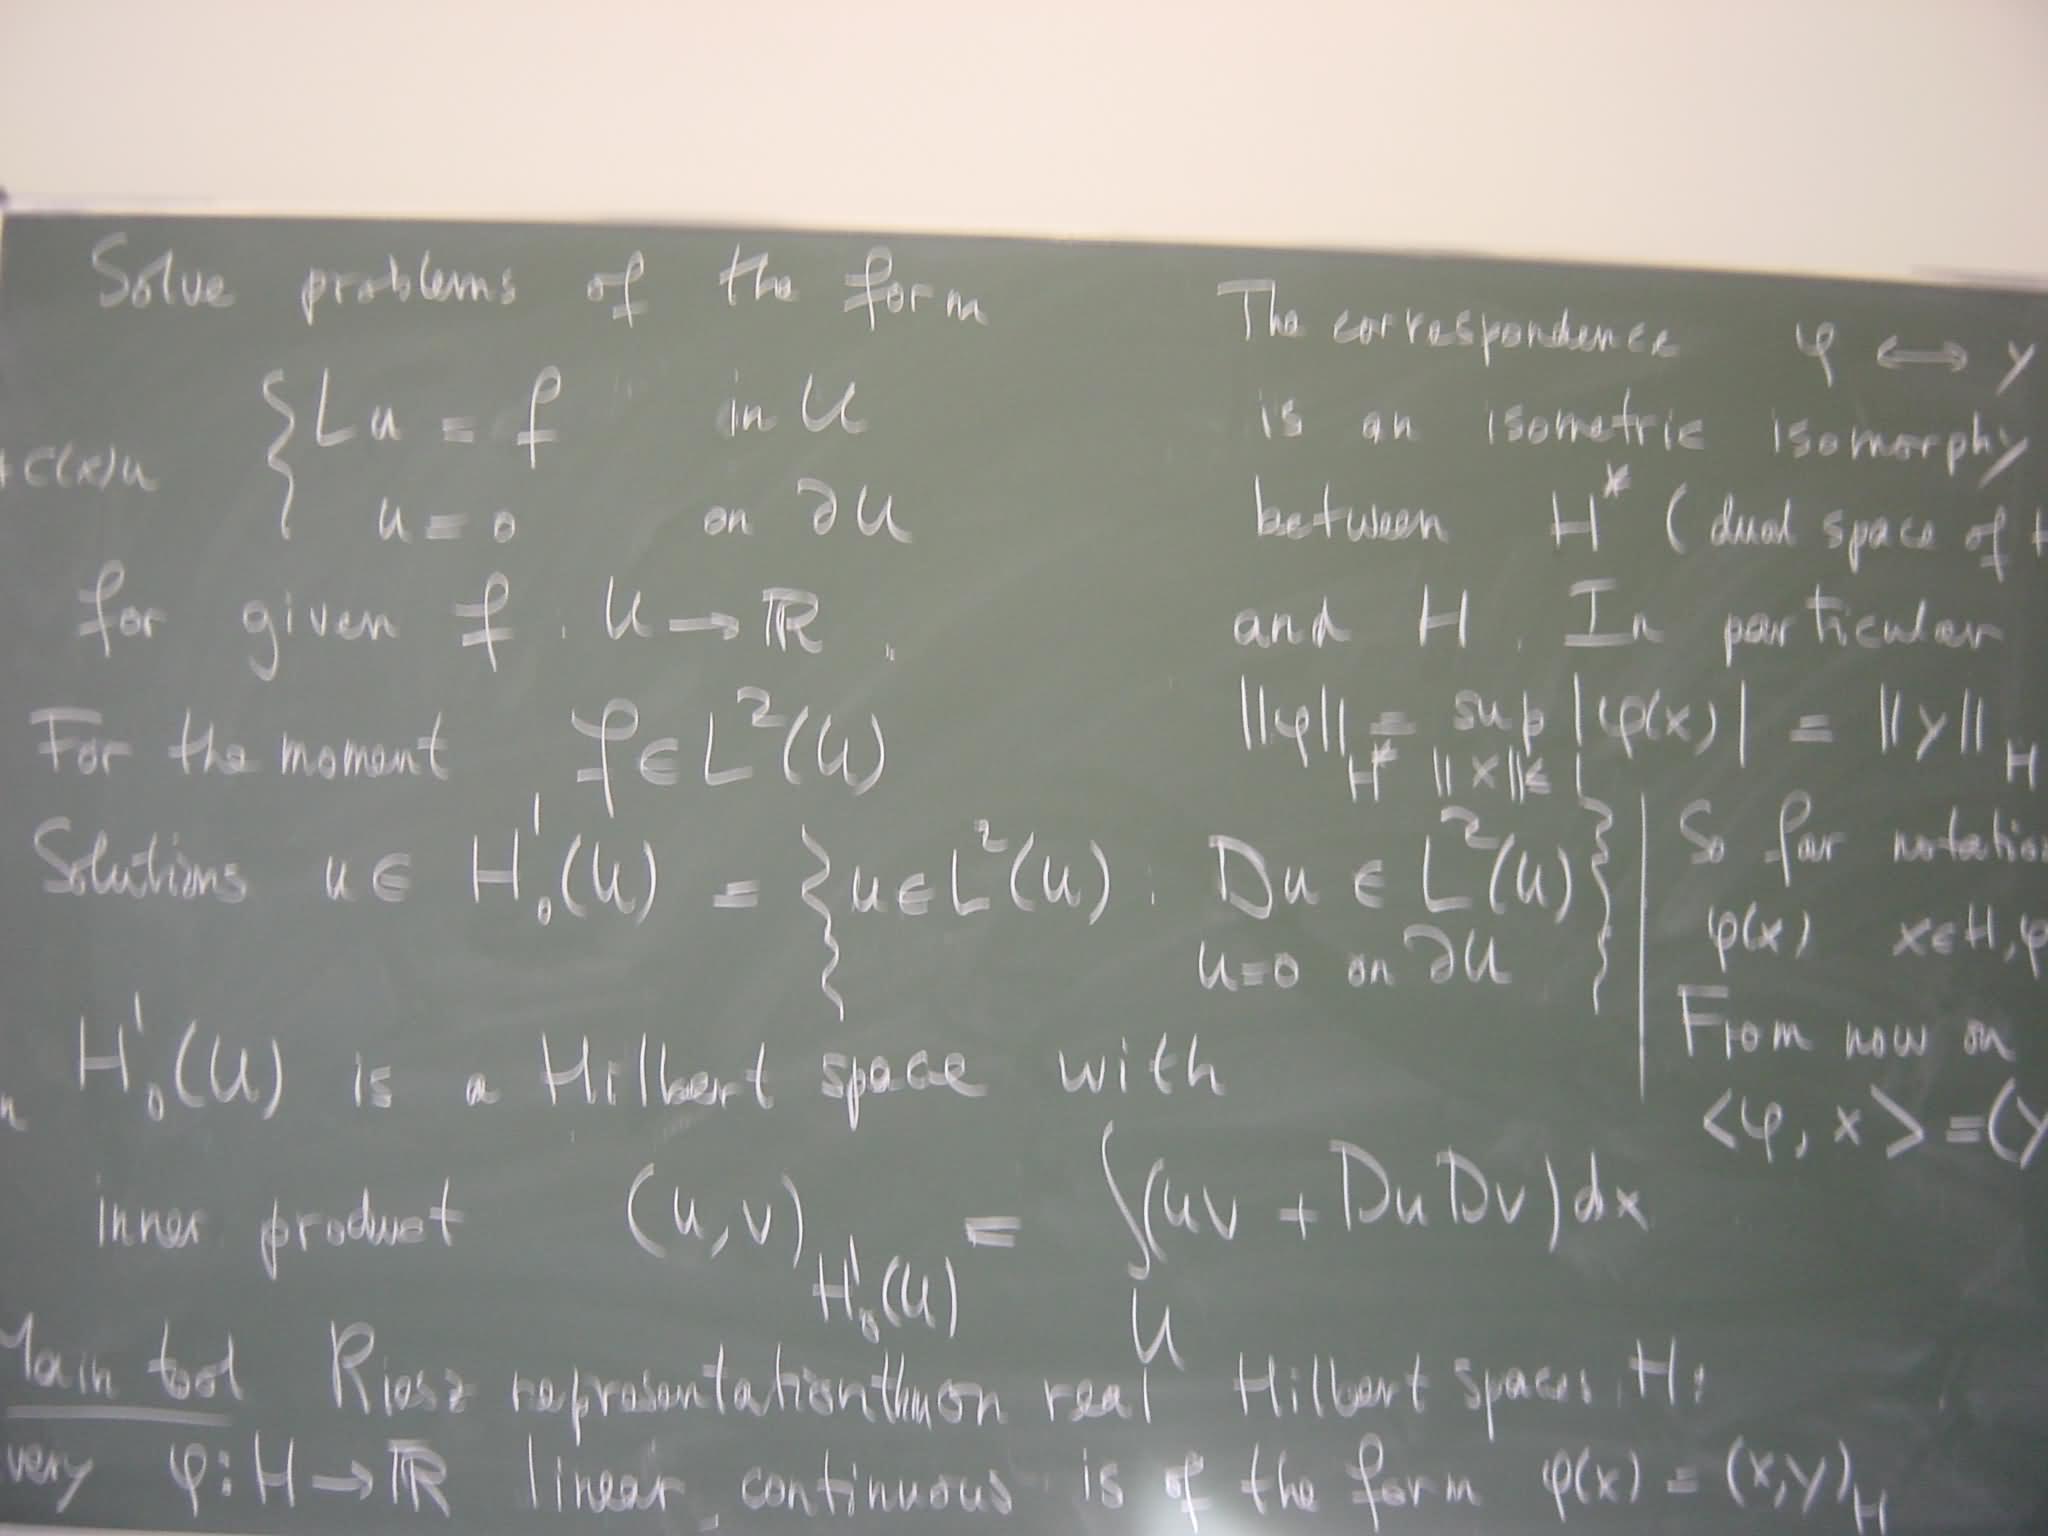 Solve problems of the form
{ Lu = f in U
+ c(x)u
u = 0 on ∂U
for given f : U → ℝ.
For the moment f ∈ L²(U)
Solutions u ∈ H¹₀(U) = { u ∈ L²(U) : Du ∈ L²(U)
u=0 on ∂U }
H¹₀(U) is a Hilbert space with
inner product (u,v)_{H¹₀(U)} = ∫_U (uv + Du Dv) dx
Main tool Riesz representation thm on real Hilbert spaces H:
very φ : H → ℝ linear, continuous is of the form φ(x) = (x,y)_H
The correspondence φ ↔ y
is an isometric isomorphy
between H* (dual space of H
and H. In particular
||φ||_{H*} = sup_{||x||≤1} |φ(x)| = ||y||_H
So far notation
φ(x) x∈H, φ
From now on
<φ, x> = (y